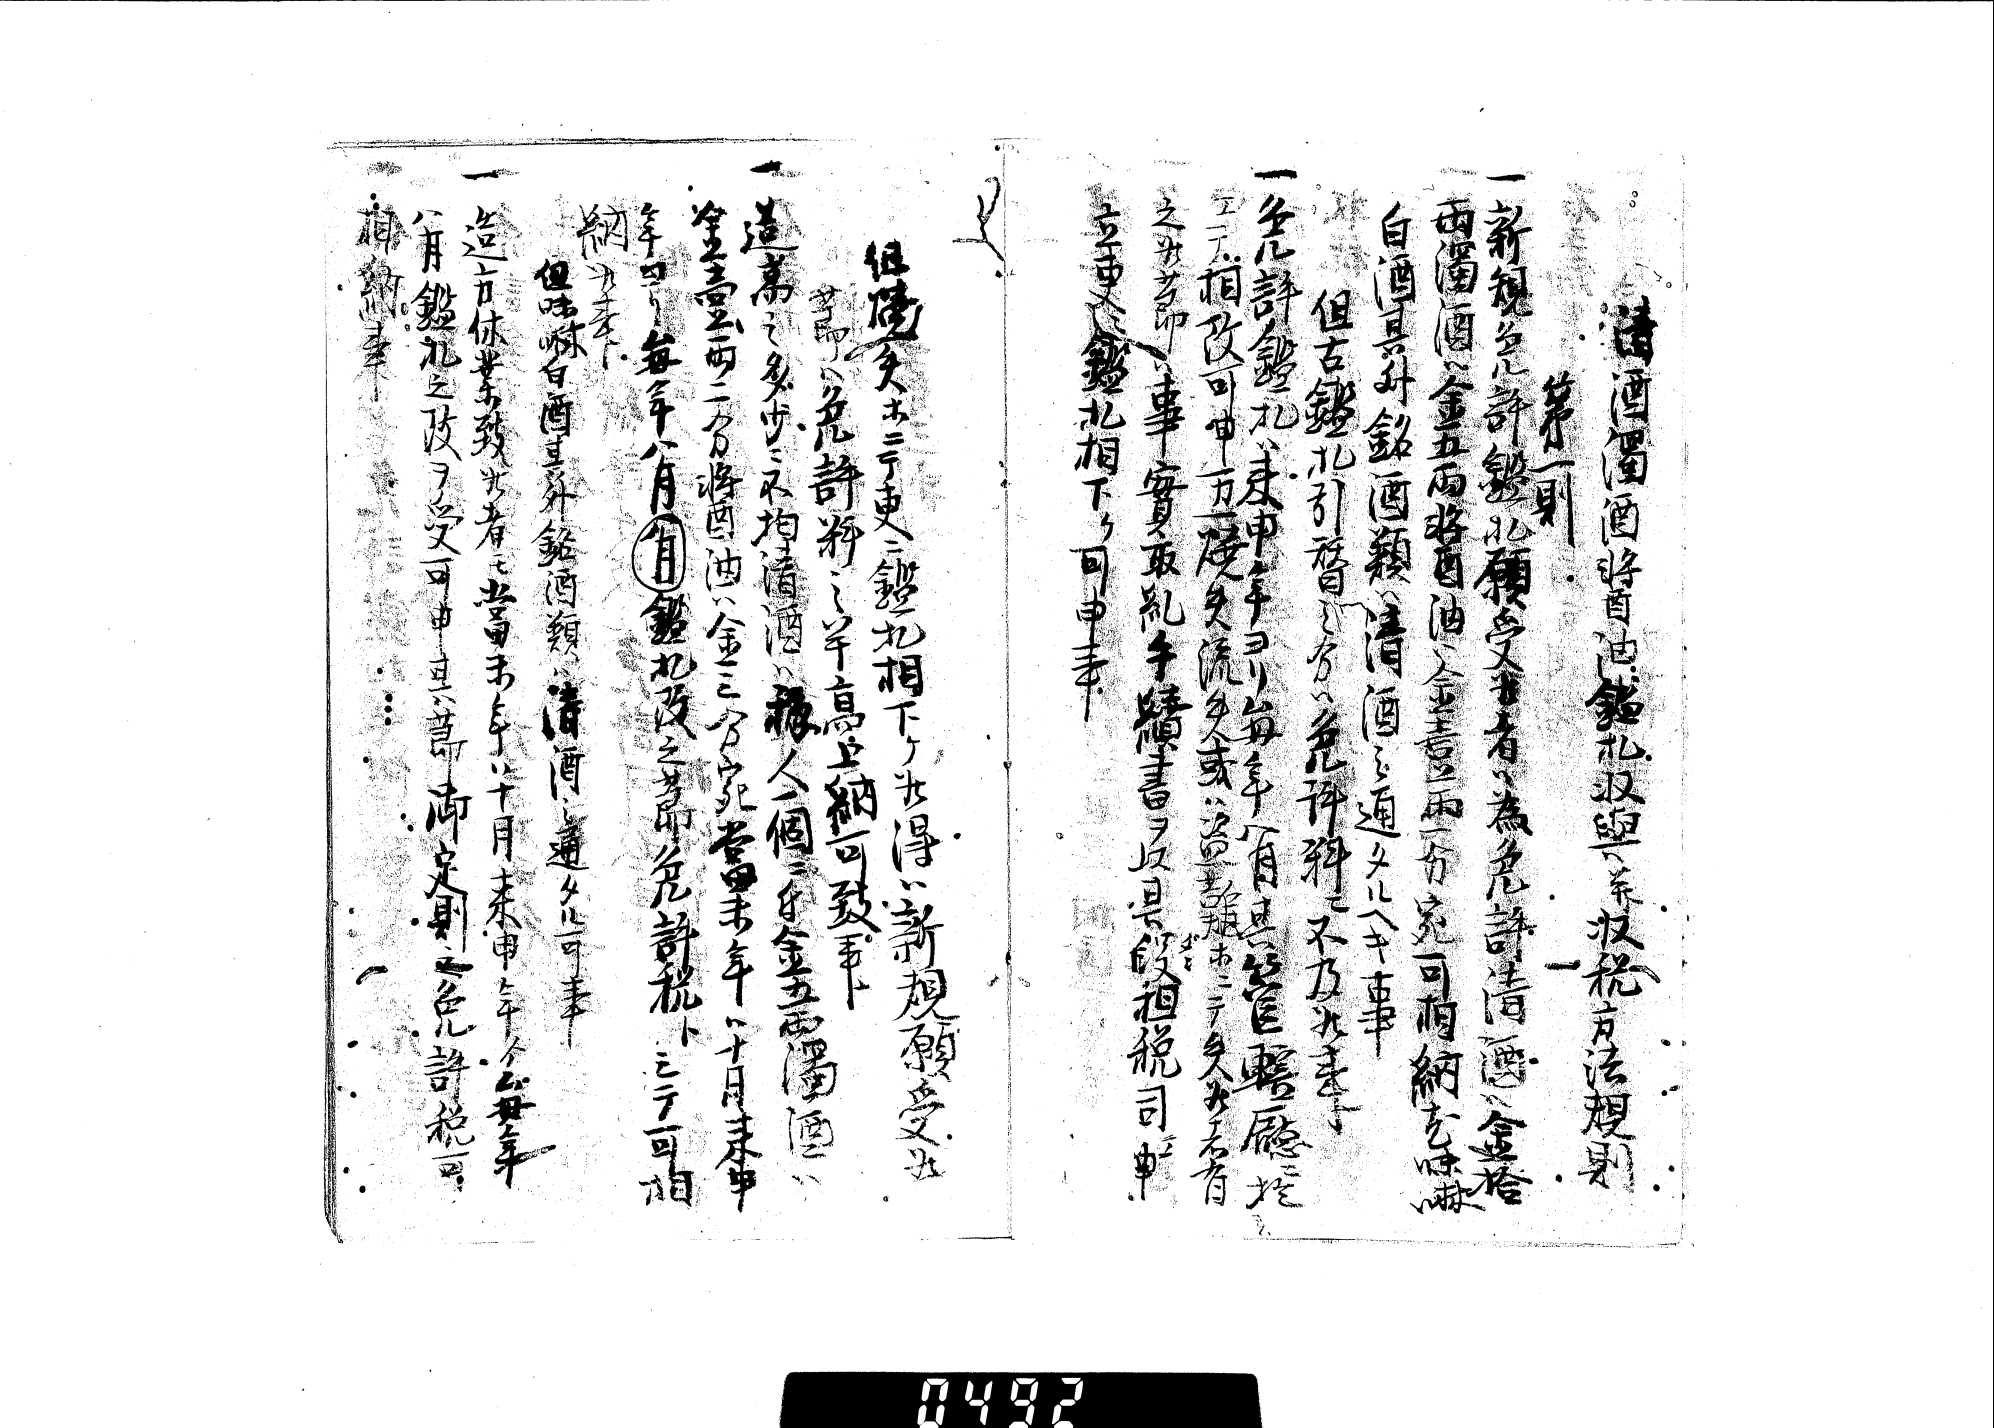 清酒濁酒醤油鑑札収與并収税方法規則
第一則
一新規免許鑑札願受候者ハ為免許清酒ハ金拾
両濁酒ハ金五両醤油ハ金壱両一分宛可相納尤味淋
白酒其外銘酒類ハ清酒之通タルヘキ事
但古鑑札引替之分ハ免許料ニ不及候事
一免許鑑札ハ来申年ヨリ毎年八月其管轄廳ニ於
テ相改可申万一焼失流失或ハ盗難ホニテ失候者有
之候節ハ事實取糺手續書ヲ以其段租税司江申
立更ニ鑑札相下ケ可申事
但焼失ホニテ更ニ鑑札相下ケ候得ハ新規願受候
節ハ免許料之半高上納可致事
一造高之多少ニ不拘清酒ハ稼人一個ニ付金五両濁酒ハ
金壱両二分醤油ハ金三分宛當未年ハ十月来申
年ヨリ毎年八月八月鑑札改之節免許税トシテ可相
納候事
但味淋白酒其外銘酒類ハ清酒之通タル可事
一造方休業致候者モ當未年ハ十月来申年ゟ毎年
八月鑑札之改ヲ受可申其節御定則之免許税可
相納事
0492